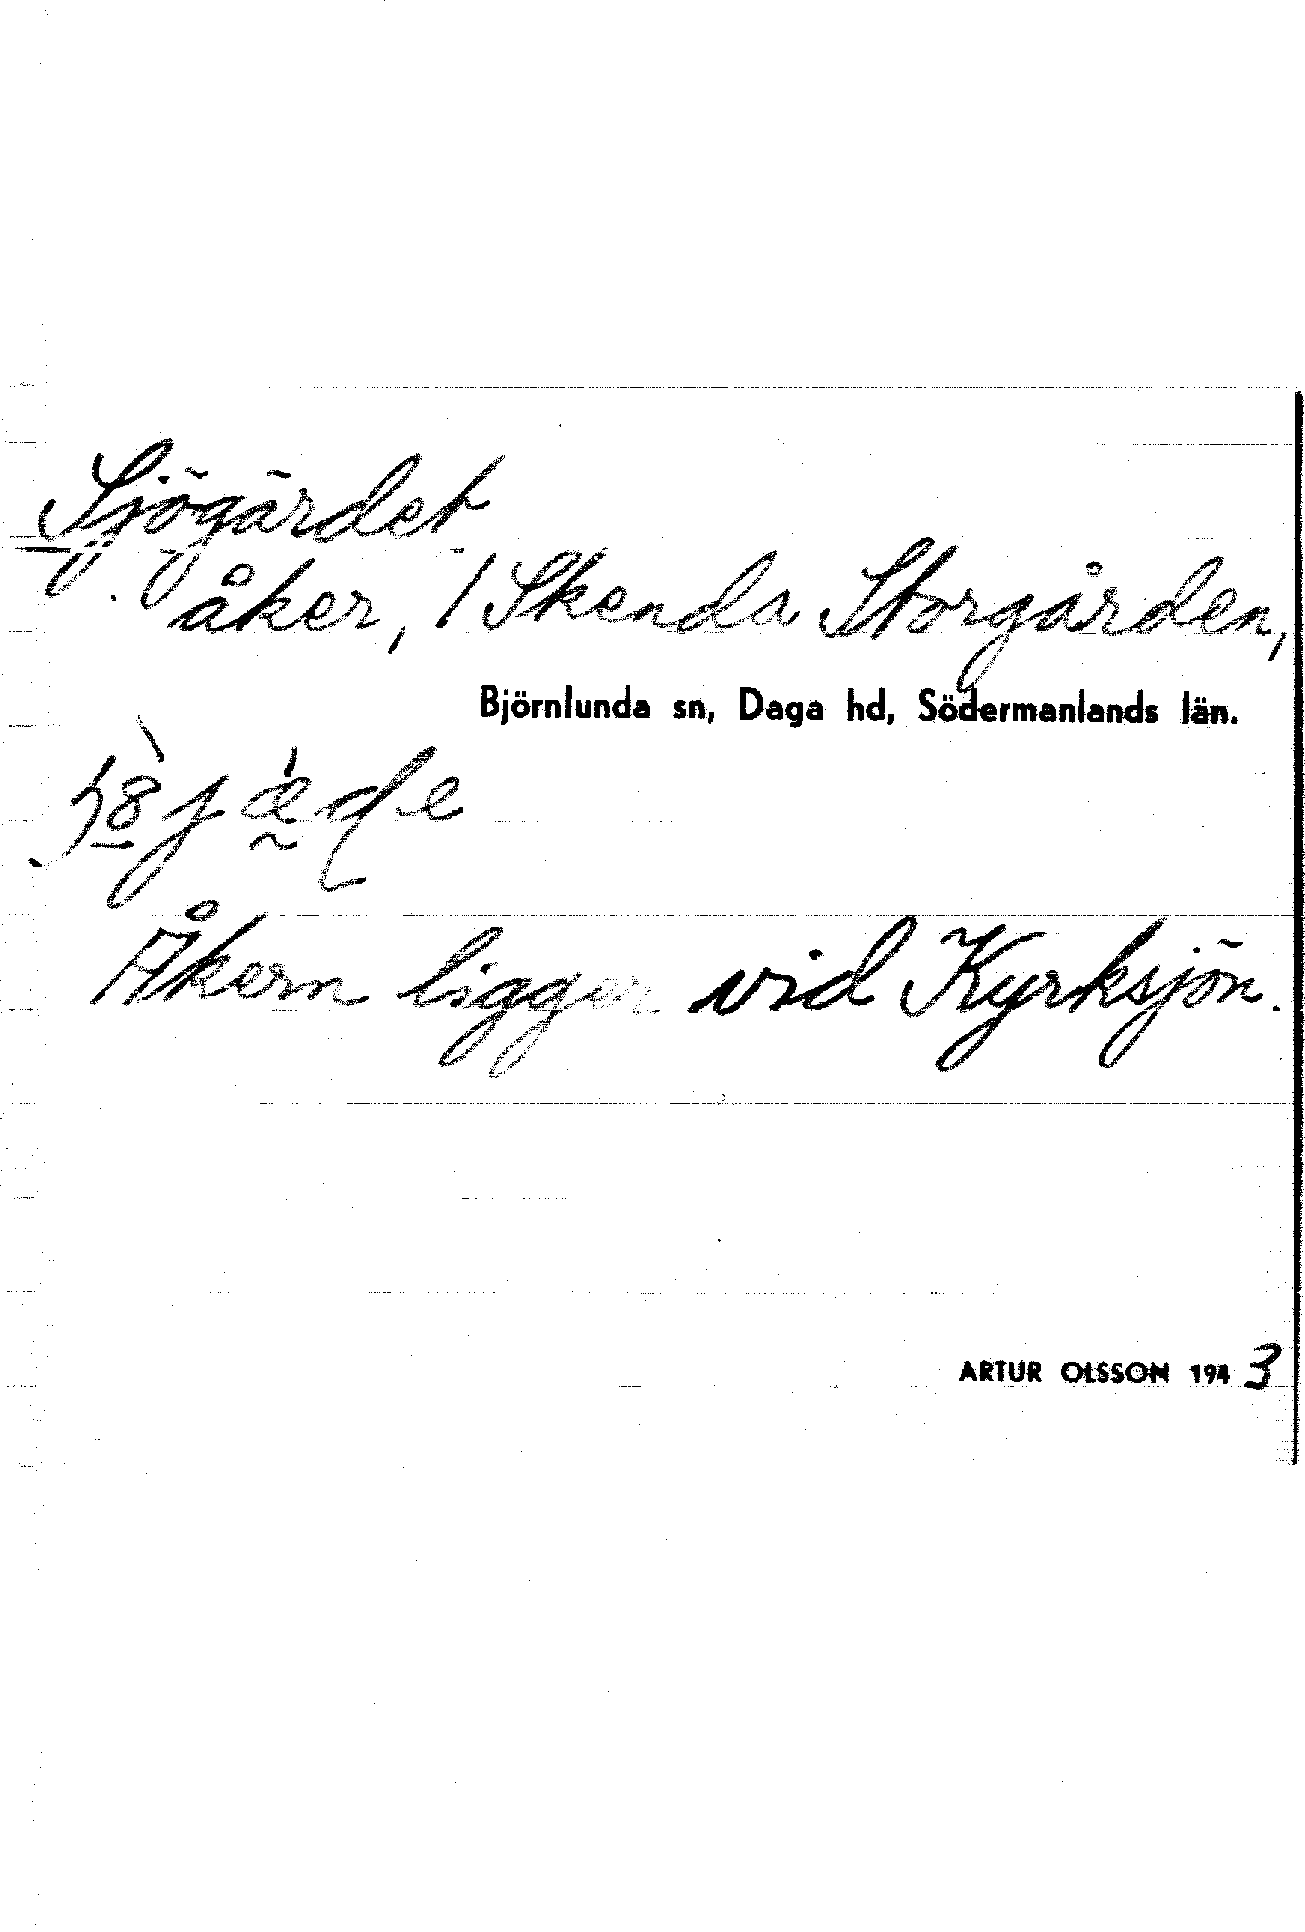 Sjögärdet
åker, / Skenda Storgården,
Björnlunda sn, Daga hd, Södermanlands län.
Åkern ligger vid Kyrksjön.
ARTUR OLSSON 1943